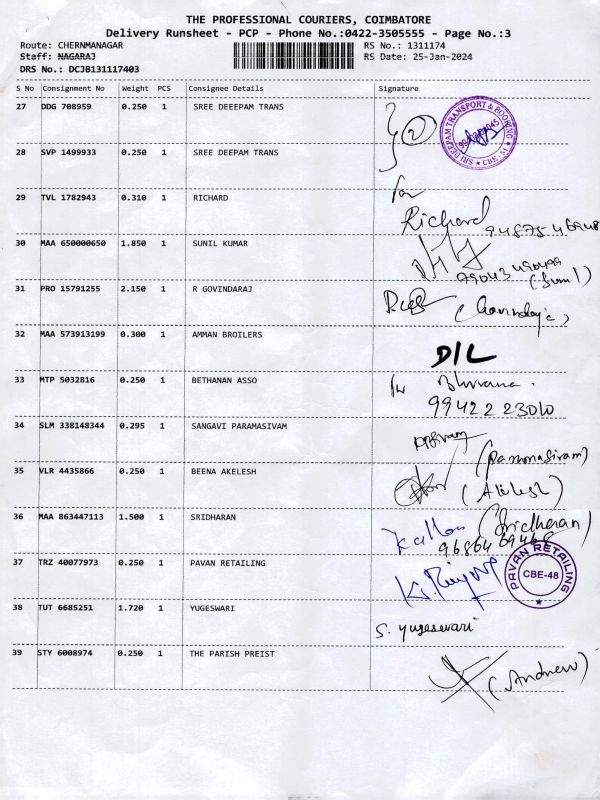 THE PROFESSIONAL COURIERS, COIMBATORE
Delivery Runsheet - PCP - Phone No.:0422-3505555 - Page No.:3
Route: CHERNMANAGAR RS No.: 1311174
Staff: NAGARAJ RS Date: 25-Jan-2024
DRS No.: DCJB131117403
S No Consignment No Weight PCS Consignee Details Signature
27 DDG 708959 0.250 1 SREE DEEEPAM TRANS
2
SRI DEEPAM TRANSPORT & BOOKING
CBE-51
28 SVP 1499933 0.250 1 SREE DEEPAM TRANS
29 TVL 1782943 0.310 1 RICHARD
for
Richard
30 MAA 650000650 1.850 1 SUNIL KUMAR
31 PRO 15791255 2.150 1 R GOVINDARAJ
32 MAA 573913199 0.300 1 AMMAN BROILERS
D/L
33 MTP 5032816 0.250 1 BETHANAN ASSO
99422 23010
34 SLM 338148344 0.295 1 SANGAVI PARAMASIVAM
35 VLR 4435866 0.250 1 BEENA AKELESH
36 MAA 863447113 1.500 1 SRIDHARAN
(Sridheran)
37 TRZ 40077973 0.250 1 PAVAN RETAILING
PAVAN RETAILING
CBE-48
38 TUT 6685251 1.720 1 YUGESWARI
S. yugeswari
39 STY 6008974 0.250 1 THE PARISH PREIST
(Andrew)